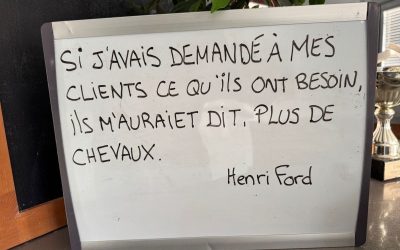 SI J'AVAIS DEMANDÉ À MES
CLIENTS CE QU'ILS ONT BESOIN,
ILS M'AURAIET DIT, PLUS DE
CHEVAUX.
Henri Ford